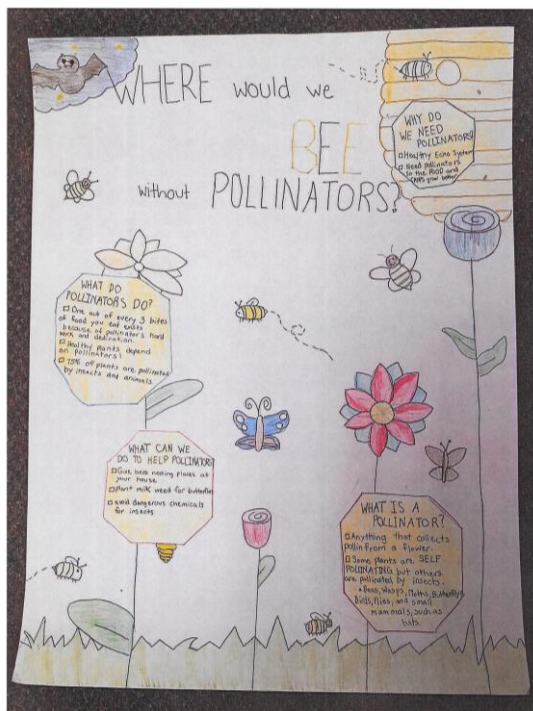 WHERE would we
BEE
without POLLINATORS?
WHY DO
WE NEED
POLLINATORS?
Healthy Echo System
Need pollinators
so the FOOD and
CROPS grow better
WHAT DO
POLLINATORS DO?
One out of every 3 bites
of food you eat exists
because of pollinator's hard
work and dedication.
Healthy plants depend
on pollinators!
75% of plants are pollinated
by insects and animals
WHAT CAN WE
DO TO HELP POLLINATORS
Give bees nesting places at
your house
Plant milk weed for butterflies
avoid dangerous chemicals
for insects
WHAT IS A
POLLINATOR?
Anything that collects
pollin from a flower.
Some plants are SELF
POLINATING but others
are pollinated by insects.
Bees, Wasps, Moths, Butterflys
Birds, Flies, and small
mammals, such as
bats.